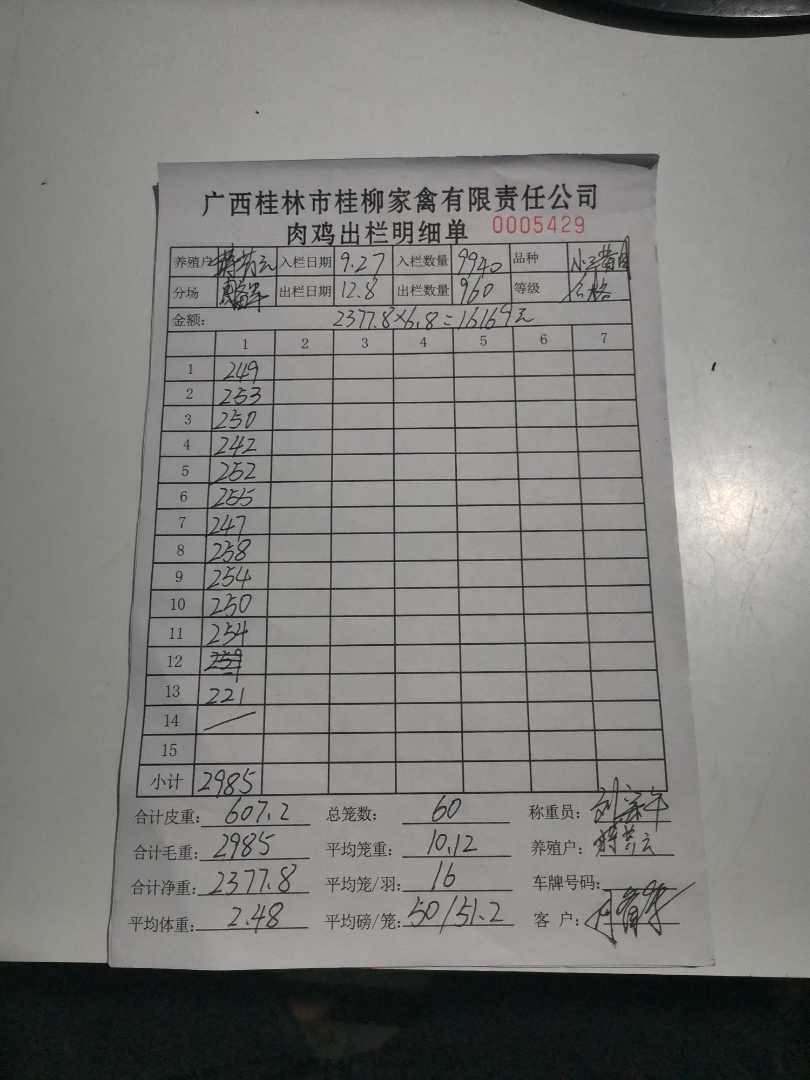 广西桂林市桂柳家禽有限责任公司
肉鸡出栏明细单 0005429
养殖户 蒋芳云 入栏日期 9.27 入栏数量 9940 品种
分场 出栏日期 12.8 出栏数量 960 等级 合格
金额: 2377.8×6.8=16169元
1 2 3 4 5 6 7
1 249
2 253
3 250
4 242
5 252
6 255
7 247
8 258
9 254
10 250
11 254
12 259
13 221
14
15
小计 2985
合计皮重: 607.2 总笼数: 60 称重员:
合计毛重: 2985 平均笼重: 10.12 养殖户: 蒋芳云
合计净重: 2377.8 平均笼/羽: 16 车牌号码:
平均体重: 2.48 平均磅/笼: 50/51.2 客户: